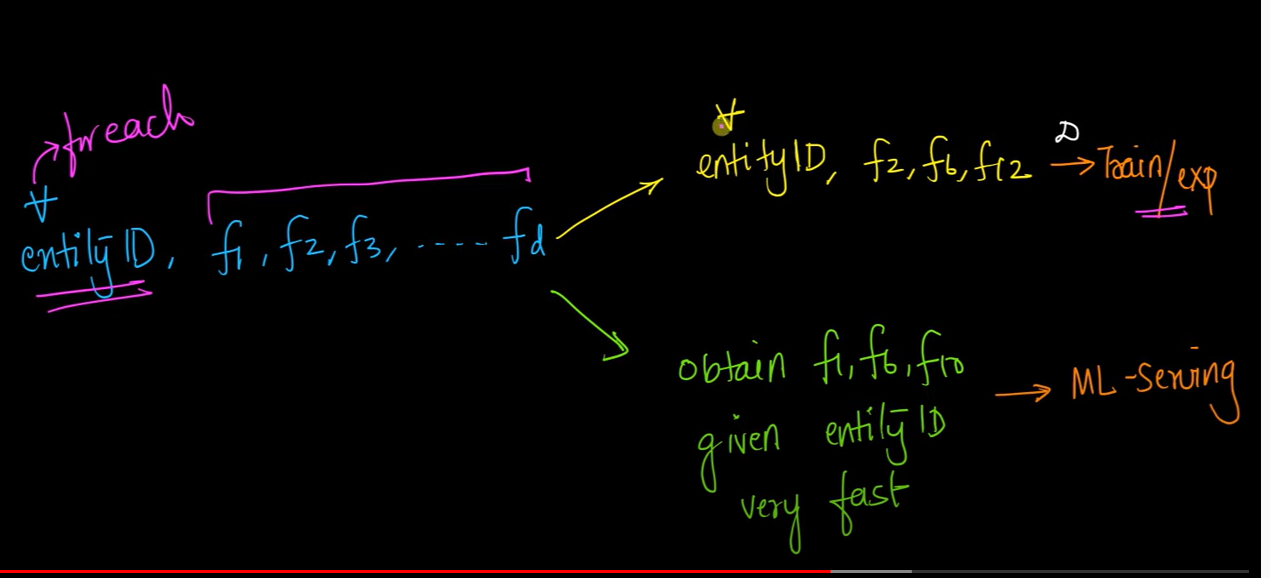 foreach
∀
entity ID, f1, f2, f3, ..... fd
∀
entity ID, f2, f6, f12 → D Train/exp
obtain f1, f6, f10
given entity ID
very fast
→ ML-serving